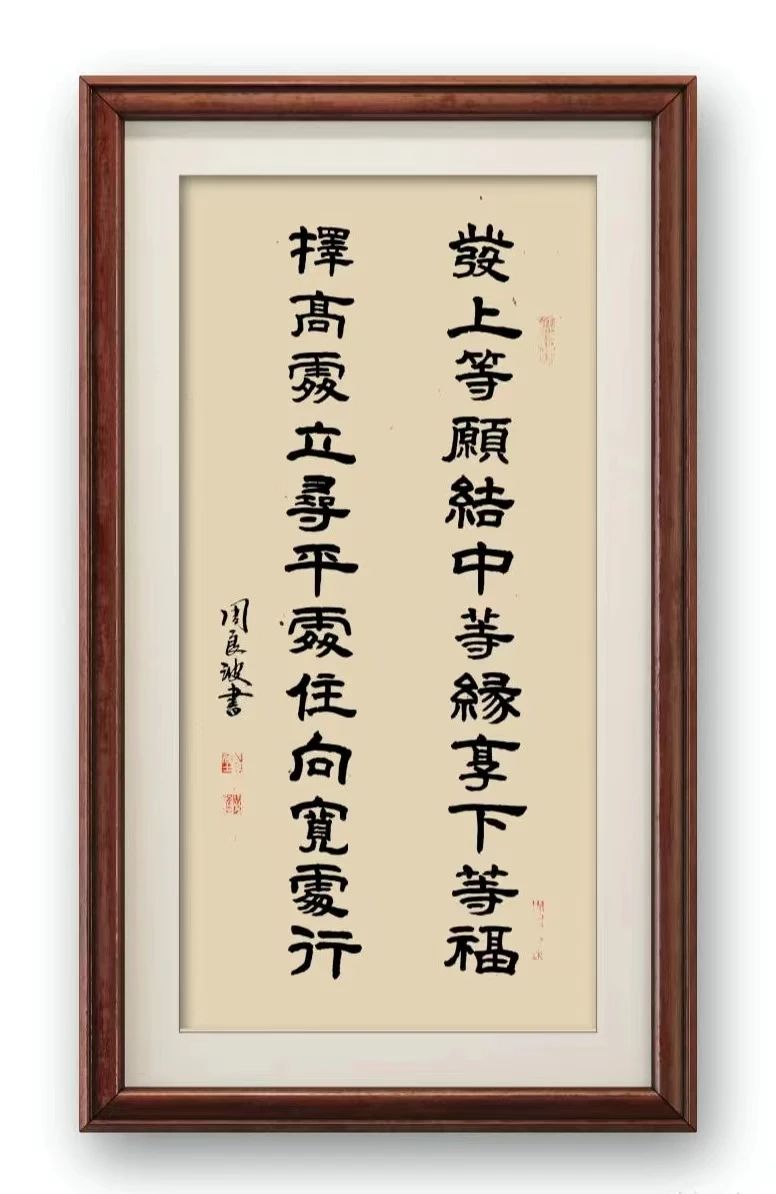 發上等願結中等緣享下等福
擇高處立尋平處住向寬處行
周良波書